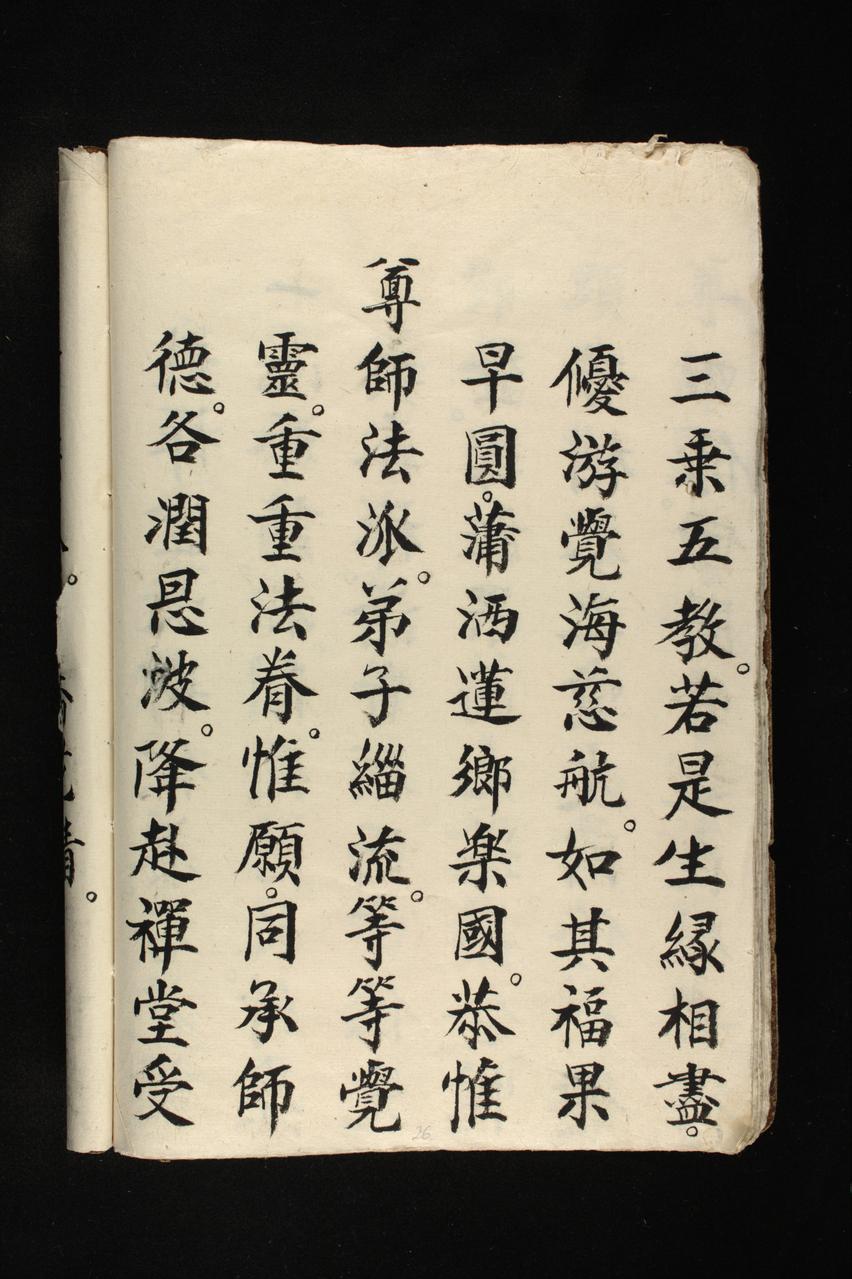 三乗五教。若是生縁相盡。
優游覺海慈航。如其福果
早圓。蒲洒蓮鄉楽國。恭惟
尊師法派。弟子緇流。等等覺
靈。重重法眷。惟願。同承師
德。各潤恩波。降赴禪堂受